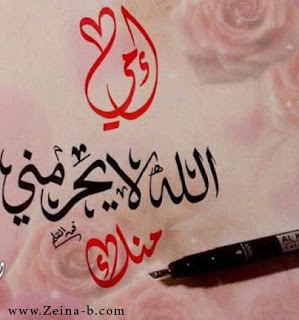 أمي
الله لا يحرمني
منك
www.Zeina-b.com